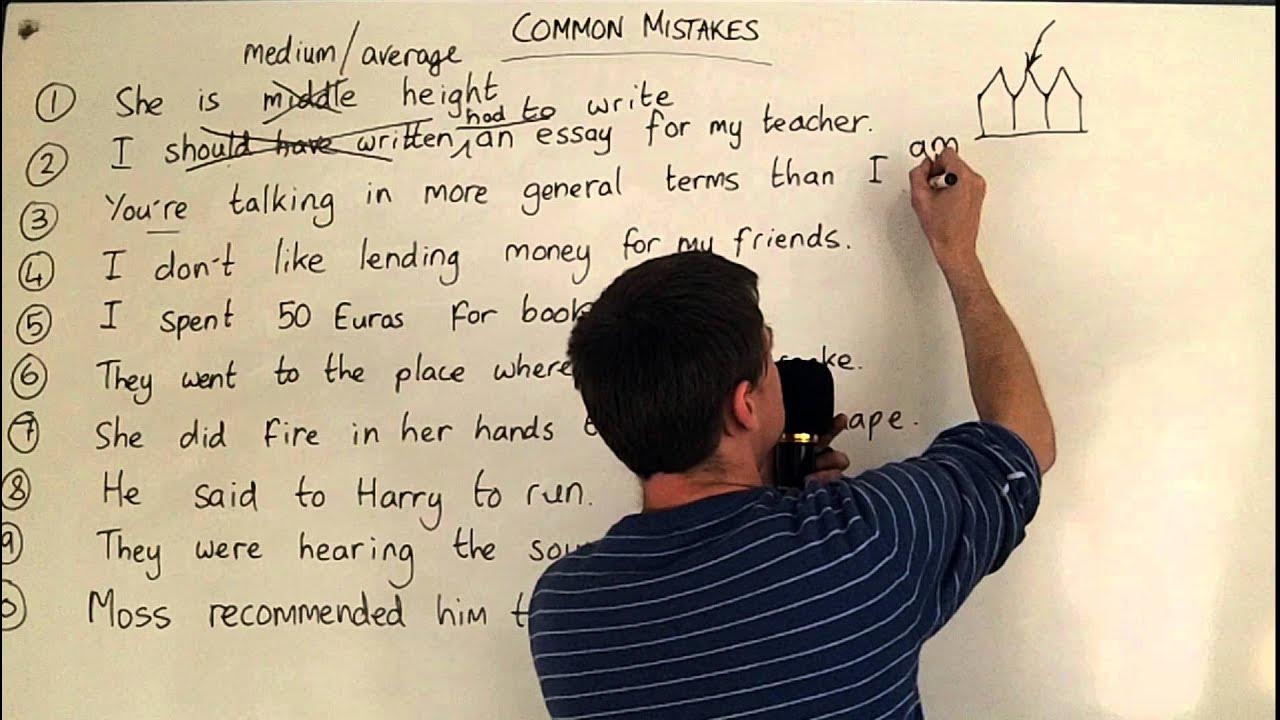 COMMON MISTAKES
medium/average
① She is middle height
had to write
② I should have written an essay for my teacher.
③ You're talking in more general terms than I am
④ I don't like lending money for my friends.
⑤ I spent 50 Euros for
⑥ They went to the place where
⑦ She did fire in her hands
⑧ He said to Harry to run.
⑨ They were hearing the
Moss recommended him